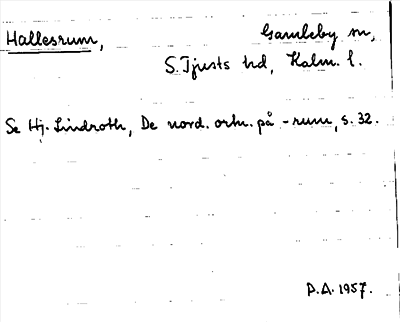 Hallesrum, Gamleby sn,
S. Tjusts hd, Kalm. l.
Se Hj. Lindroth, De nord. ortn. på -rum, s. 32.
P.A. 1957.